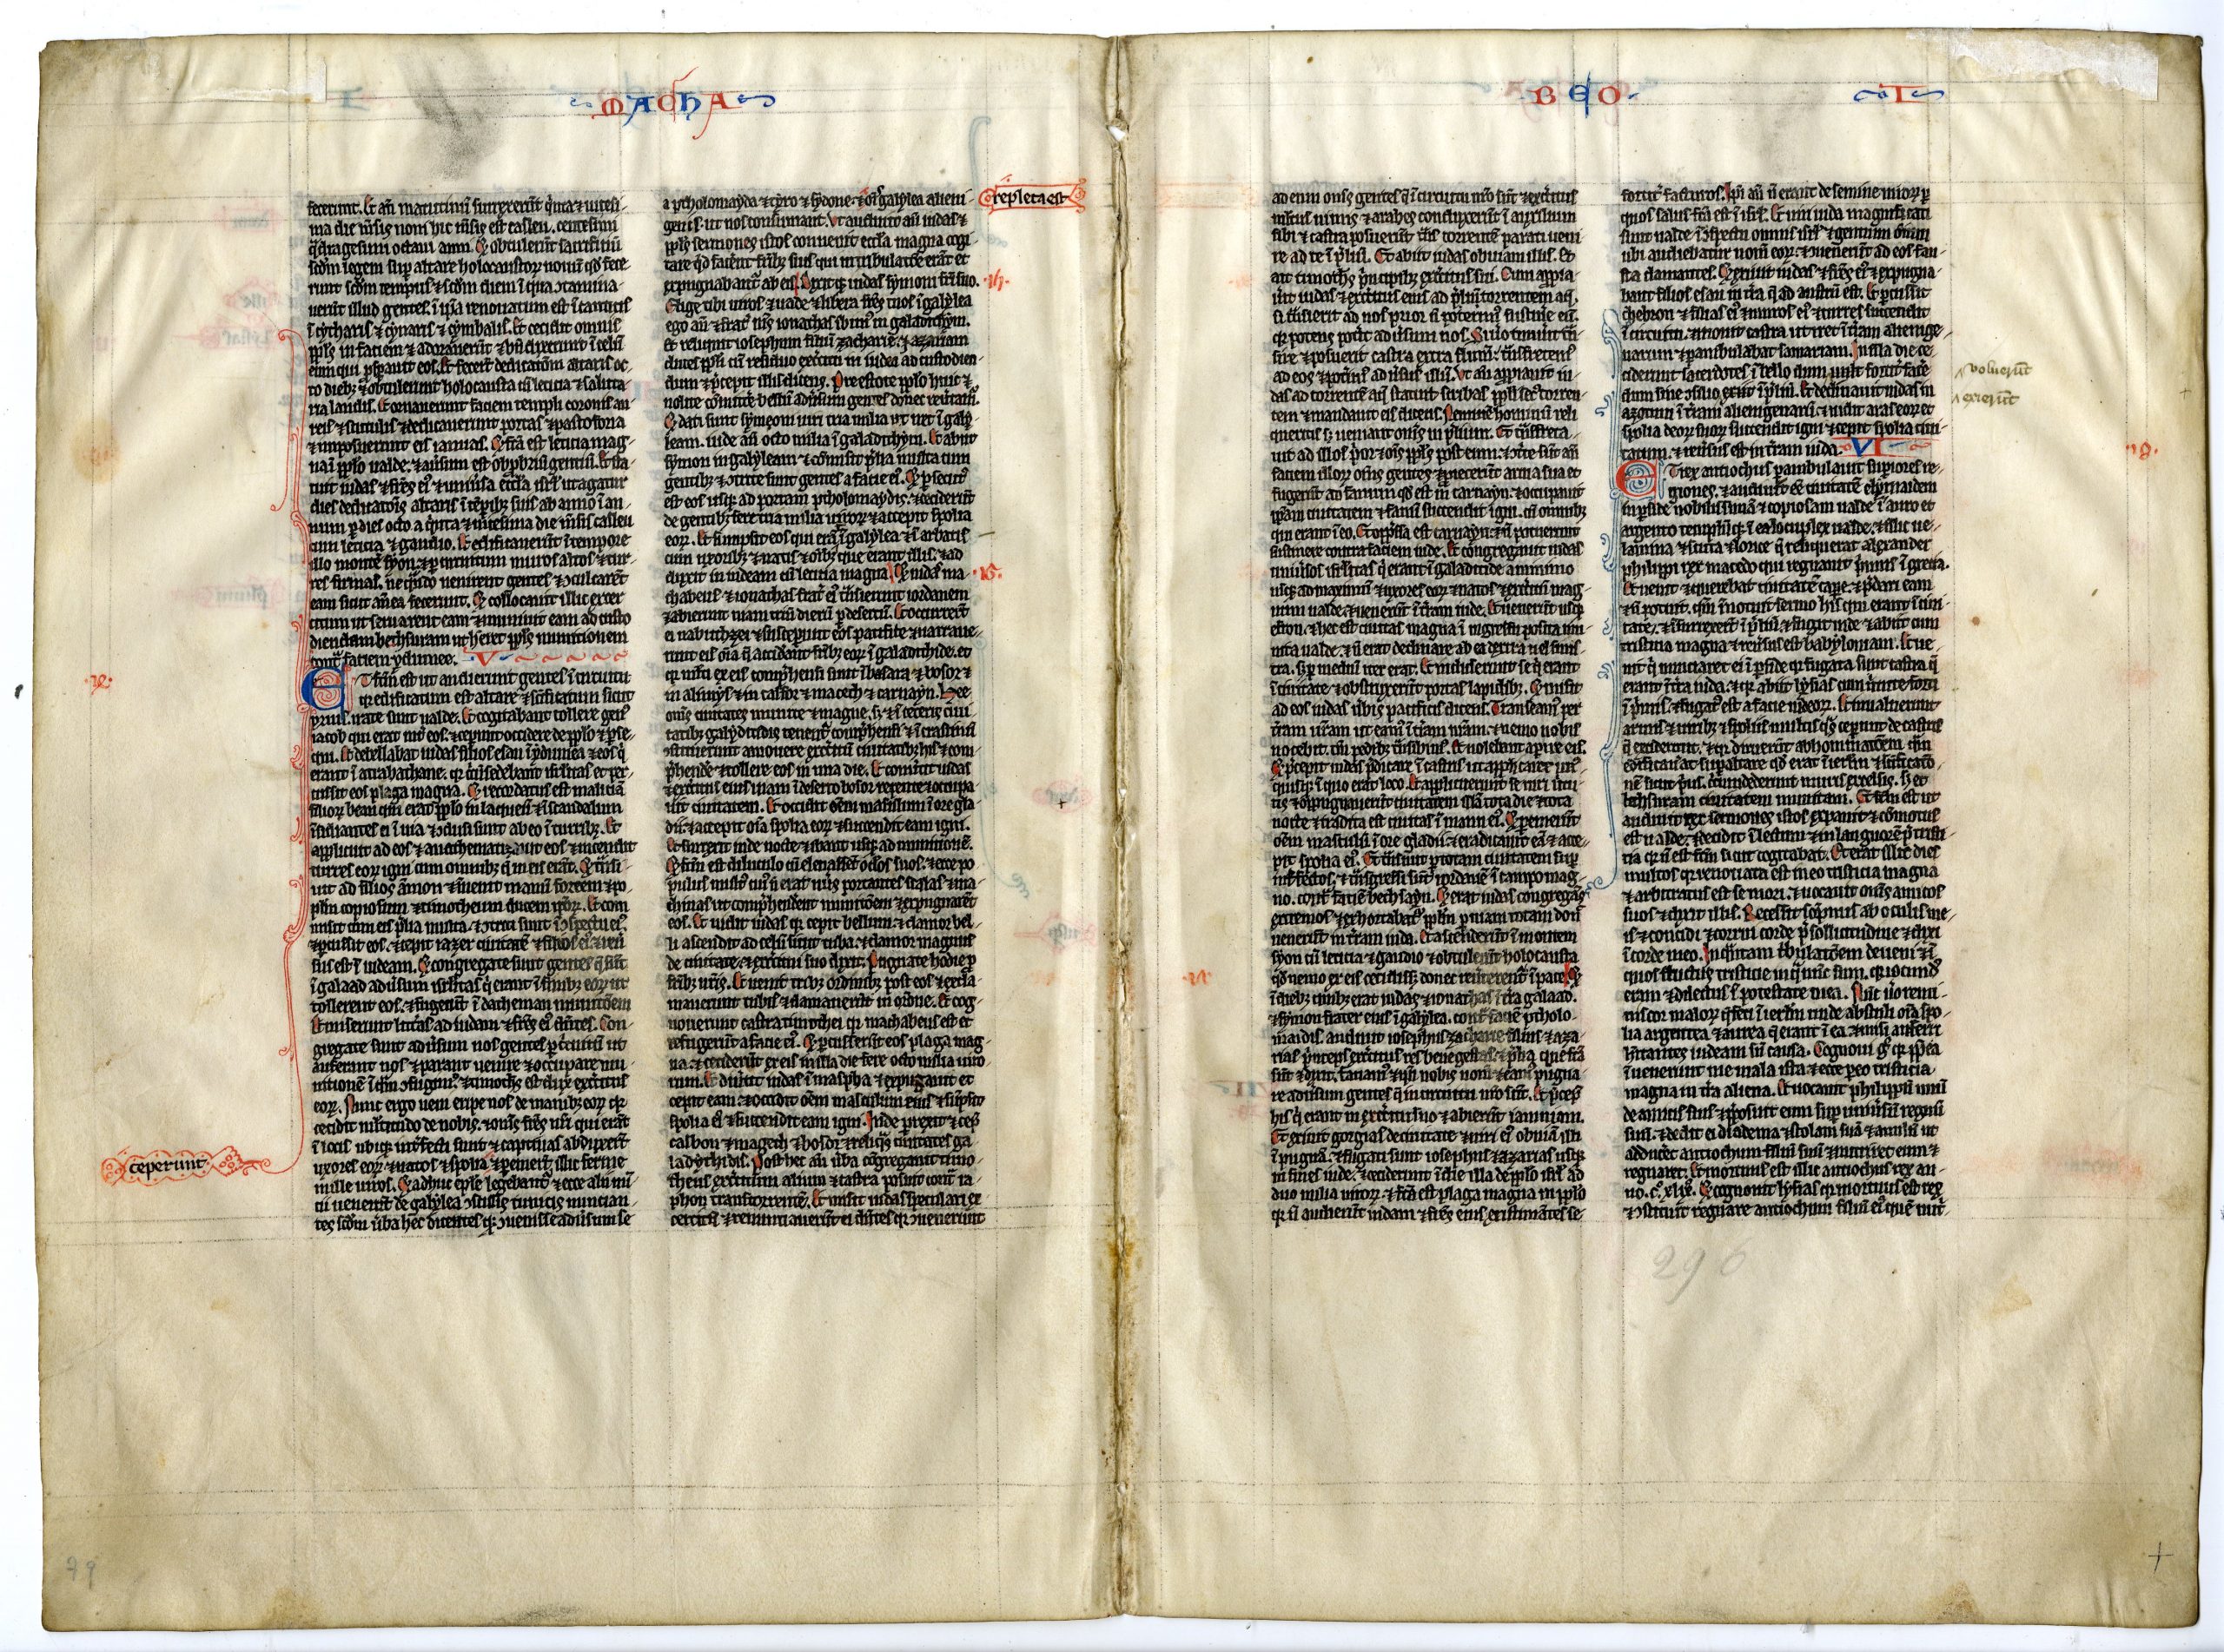 MACHA
BEO
I
fecerunt. Et añ matutinũ surrexerũt qnta et uicesi-
ma die mẽsis noni hic mẽsis est casleu. centesimi
qdragesimi octaui anni. Et obtulerũt sacrificiũ
scdm legem sup altare holocaustor nouũ qd fece
runt scdm tempus et scdm diem i qua 9tamina-
uerũt illud gentes. i ipa renouatum est i canticis
i cytharis et cynaris et cymbalis. Et cecidit omnis
ppls in faciem et adorauerũt et bñdixerunt i celũ
eum qui psperauit eos. Et fecerũt dedicatiom altaris oc-
to dieb et obtulerunt holocausta cũ leticia et saluta-
ria laudis. Et ornauerunt faciem templi coronis au-
reis et scutulis et dedicauerunt portas et pastoforia
et imposuerunt eis ianuas. Et fca est leticia mag-
na i pplo ualde. et auersum est obpbriũ gentiũ. Et sta-
tuit iudas et frẽs ei et uniuersa eccla isrl ut agatur
dies dedicatõis altaris i tẽpib suis ab anno i an-
num p dies octo a qnta et uicesima die mẽsis casleu
cum leticia et gaudio. Et edificauerũt i tempore
illo montẽ syon et p circuitum muros altos et tur-
res firmas. ne qñdo uenirent gentes et 9culcarẽt
eam sicut añea fecerunt. Et collocauit illic exer
citum ut seruarent eam et muniuit eam ad custo
diendam bethsuram ut hẽret ppls munitionem
cont faciem ydumee. V
ET fcm est ut audierunt gentes i circuitu
qr edificatum est altare et scificatum sicut
prius. irate sunt ualde. Et cogitabant tollere gen
iacob qui erat int eos. et ceperunt occidere de pplo et pse-
qui. Et debellabat iudas filios esau i ydumea et eos q
erant i acrabathane. qr circũsedebant isrlitas et per-
cussit eos plaga magna. Et recordatus est maliciã
filior bean qui erãt pplo in laqueũ et i scandalum
isidiantes ei i uia et 9clusi sunt ab eo i turrib. Et
applicuit ad eos et anathematizauit eos et incendit
turres eor igni cum omnib q in eis erãt. Et trãsi-
uit ad filios ãmon et inuenit manũ fortem et po-
plm copiosum et timotheum ducem ipor. Et com
misit cum eis plia multa. et 9triti sunt i 9spectu ei
et pcussit eos. et cepit iazer ciuitatẽ et filias ei et reu
sus est i iudeam. Et congregate sunt gentes q sũt
i galaad adusum isrlitas q erant i finib eor ut
tollerent eos. et fugerũt i datheman munitõem
Et miserunt litteras ad iudam et frẽs ei dicẽtes. Con-
gregate sunt adusum nos gentes p circuitũ ut
auferant nos et parant uenire et occupare mu-
nitionẽ i quã 9fugim. et timothe est dux exercitus
eor. Nunc ergo ueni eripe nos de manib eor qr
cecidit mltitudo de nobis. et oms frẽs nri qui erãt
i locis ubiq intfecti sunt et captiuas abduxerũt
uxores eor et natos et spolia et pemerũt illic ferme
mille uiros. Et adhuc eple legebant et ecce alii nũ
cii uenerũt de galylea 9scissis tunicis nuncian-
tes scdm uba hec dicentes qr 9uenisse adusum se
ceperunt
a ptholomayda et tyro et sydone. et ois galylea alieni-
genis. ut nos consumant. Vt audiuit añ iudas et
ppls sermones istos conuenit eccla magna cogi
tare qd facẽnt frib suis qui in tribulatõe erãt et
expugnabant ab eis. Dixit q iudas symoni fri suo.
Elige tibi uiros et uade et libera frẽs tuos i galylea
ego añ et frat ms ionathas ibim in galadithym.
Et reliquit iosephum filiũ zacharie. et azariam
duces ppli cũ residuo exercitu in iudea ad custodien-
dum et pcepit illis dicens. Preestote pplo huic et
nolite cõmittẽ bellũ adusum gentes donec reutam.
Et dati sunt symeoni uiri tria milia ut iret i galy-
leam. iude añ octo milia i galadithym. Et abiit
symon in galyleam et cõmisit plia multa cum
gentib et 9trite sunt gentes a facie ei. Et psecut
est eos usq ad portam ptholomaydis. et ceciderũt
de gentib fere tria milia uiror et accepit spolia
eor. Et sumpsit eos qui erãt i galylea et i arbatis
cum uxorib et natis et oib que erant illis. et ad
duxit in iudeam cũ leticia magna. Et iudas ma-
chabeus et ionathas frat ei trãsierunt iordanem
et abierunt uiam triũ dierũ p desertũ. Et occurrerũt
ei nabuthei et susceperunt eos pacifice et narraue-
runt eis oia q acciderãt frib eor i galadithide. et
qr multi ex eis comphensi sunt i basara et bosor et
in alimys et in casfor et mageth et carnayn. Hee
oms ciuitates munite et magne. s et i ceteris ciui
tatib galyditidis tenent comphensi et i crastinũ
9stituerunt amouere exercitũ ciuitatib his et com-
phendẽ et tollere eos in una die. Et conuertit iudas
et exercitus eius uiam i deserto bosor repente et occupa
uit ciuitatem. Et occidit oẽm masculum i ore gla
dii. et accepit oia spolia eor et succendit eam igni.
Et surrexit inde nocte et ibant usq ad munitionẽ.
Et fcm est diluculo cũ eleuassẽt oclos suos. et ecce po
pulus multus cui n erat numus portantes scalas et ma
chinas ut comphenderent munitõem et expugnarẽt
eos. Et uidit iudas qr cepit bellum. et clamor bel-
li ascendit ad celũ sicut tuba. et clamor magnus
de ciuitate. et exercitui suo dixit. Pugnate hodie p
frib uris. Et uenit trib ordinib post eos et excla-
mauerunt tubis et clamauerũt in oratõe. Et cog-
nouerunt castra timothei qr machabeus est et
refugerũt a facie ei. Et pcusserũt eos plaga mag-
na. et ceciderũt ex eis in illa die fere octo milia uiro
rum. Et diuertit iudas i maspha et expugnauit et
cepit eam. et occidit oẽm masculum eius et sũpsit
spolia ei et succendit eam igni. Inde perrexit et cep
casbon et mageth et bosor et reliqas ciuitates ga
ladythidis. Post hec añ uba cõgregauit timo-
theus exercitum alium et castra posuit cont ra-
phon trans torrentem. Et misit iudas speculari ex
ercitũ et renunciauerũt ei dicẽtes qr 9uenerunt
repleta est
ad eum oms gentes q i circuitu nro sũt et exercitus
multus nimis et arabes conduxerũt i auxilium
sibi et castra posuerũt trãs torrentẽ parati ueni
re ad te i pliũ. Et abiit iudas obuiam illis. Et
ait timothe pncipib exercitus sui. Cum appro
it iudas et exercitus eius ad pximũ torrentem aq.
si trãsierit ad nos prior n poterim sustinẽ eũ.
qr potens potit aduersum nos. Si uo timuit trã
sire et posuerit castra extra flumẽ. trãsfretem
ad eos et poterim adusus illũ. Vt añ appinquauit iu-
das ad torrentẽ aq statuit scribas ppli secus torren-
tem et mandauit eis dicens. Neminẽ hominũ reli
queritis s ueniant oms in plium. Et trãsfreta-
uit ad illos por et oms ppls post eum. et 9trite sũt añ
faciem illor oms gentes et proiecerũt arma sua et
fugerũt ad fanum qd est in carnayn. et occupauit
ipam ciuitatem et fanũ succendit igni. cũ omnib
qui erant i eo. Et oppssa est carnayn. et n potuerunt
sustinere contra faciem iude. Et cõgregauit iudas
uniusos isrlitas q erant i galaditide a minimo
usq ad maximũ et uxores eor et natos et exercitũ mag-
num ualde. et uenerũt i trãm iude. Et uenerũt usq
efron. et hec est ciuitas magna i ingressu posita mu-
nita ualde. et n erat declinare ad ea dextra ul sinis
tra. s p mediũ iter erat. Et incluserunt se q erant
i ciuitate et obstruxerũt portas lapidib. Et misit
ad eos iudas ubis pacificis dicens. Transeam per
trãm urãm ut eam i trãm nrãm. et nemo uobis
nocebit. tm pedib trãsibim. Et nolebant apire eis.
Et pcepit iudas pdicare i castris ut applicarẽt un
quisq i quo erat loco. Et applicuerunt se uiri uirtu
tis et oppugnauerũt ciuitatem illã tota die et tota
nocte et tradita est ciuitas i manu ei. Et pemerũt
oẽm masculũ i ore gladii. et eradicauit eã et acce-
pit spolia ei. Et trãsiuit p totam ciuitatem sup
intfectos. et trãsgressi sũt iordanẽ i campo mag-
no. cont faciẽ bethsayn. Et erat iudas congregãs
extremos et exhortabat pplm p uiam totam don
uenerũt in trãm iuda. Et ascenderũt i montem
syon cũ leticia et gaudio et obtulerũt holocausta
qd nemo ex eis cecidiss donec reuterent i pace. Et
i dieb quib erat iudas et ionathas i tra galaad.
et symon frater eius i galylea. cont faciẽ ptholo-
maidis. audiuit iosephus zacharie filius et aza
rias pnceps exercitus res bene gestas et plia que fcã
sũt et dixit. faciam et ipi nobis nom et eam pugna-
re adusum gentes q in circuitu nro sũt. Et pcep
his q erant in exercitu suo et abierũt iamniam.
Et exiuit gorgias de ciuitate et uiri ei obuiã illi
i pugnã. et fugati sunt iosephus et azarias usq
in fines iude. et ceciderunt i die illa de pplo isrl ad
duo milia uiror. et fca est plaga magna in pplo
qr n audierũt iudam et frẽs eius existimãtes se
fortit facturos. Ipi añ n erant de semine uiror p
quos salus fca est i isrl. Et uiri iuda magnificati
sunt ualde i 9spectu omnis isrl et gentium omm
ubi audiebatur nom eor. et 9uenerũt ad eos fau-
sta clamantes. Et exiuit iudas et frẽs ei et expugna-
bant filios esau in tra q ad austrũ est. Et percussit
chebron et filias ei et muros ei et turres succendit
i circuitu. et mouit castra ut iret i trãm alienige-
narum et pambulabat samariam. In illa die ce-
ciderunt sacerdotes i bello dum uult fortit face
dum sine 9silio exiit i pliũ. Et declinauit iudas in
azotum i trãm alienigenarũ. et diruit aras eor et
spolia deor suor succendit igni et cepit spolia ciui-
tatum. et reusus est in trãm iuda. VI
uoluerũt
exierũt
ET rex antiochus pambulauit supiores re-
giones. et audiuit eẽ ciuitatẽ elymaidem
in pside nobilissimã et copiosam ualde i auro et
argento templũq i ea locuplex ualde. et illic ue-
lamina et scuta et lorice q reliquerat alexander
philippi rex macedo qui regnauit primus i grecia.
Et uenit et querebat ciuitatẽ cape. et pdari eam
et n potuit. qm inotuit sermo his qui erant i ciui-
tate. et insurrexerũt i pliũ. et fugit inde et abiit cum
tristicia magna et reusus est babyloniam. Et ue
nit q nunciaret ei i pside qr fugata sunt castra q
erant i tra iuda. et qr abiit lysias cum uirtute forti
i pmis. et fugat est a facie iudeor. Et inualuerunt
armis et uirib et spoliis multis q ceperunt de castris
q exciderunt. et qr diruerũt abhominatõem quã
edificauat sup altare qd erat i ierlm et scificatio-
nẽ sicut pus. circũdederunt muris excelsis. s et
bethsuram ciuitatem munitam. Et fcm est ut
audiuit rex sermones istos expauit et cõmotus
est ualde. et decidit i lectum et in languorẽ p tristi-
cia qr n est fcm sicut cogitabat. Et erat illic dies
multos qr renouata est in eo tristicia magna
et arbitratus est se mori. et uocauit oms amicos
suos et dixit illis. Recessit sopnus ab oculis me-
is et concidi et corrui corde p sollicitudine et dixi
i corde meo. In quãtam tribulatõem deueni et i
quos fluctus tristicie in q nũc sum. qr iocund
eram et dilectus i potestate mea. Nũc uo remi-
niscor malor q feci i ierlm unde abstuli oia spo-
lia argentea et aurea q erant i ea. et misi auferri
hitantes iudeam sñ causa. Cognoui g qr ppea
inuenerunt me mala ista et ecce pereo tristicia
magna in tra aliena. Et uocauit philippũ unũ
de amicis suis et pposuit eum sup uniusũ regnũ
suũ. et dedit ei diadema et stolam suã et anulũ ut
adducẽt antiochum filiũ suũ et nutriret eum et
regnaret. Et mortuus est illic antiochus rex an-
no. c. xlix. Et cognouit lysias qr mortuus est rex
et 9stituit regnare antiochum filiũ ei quẽ nut
296
79